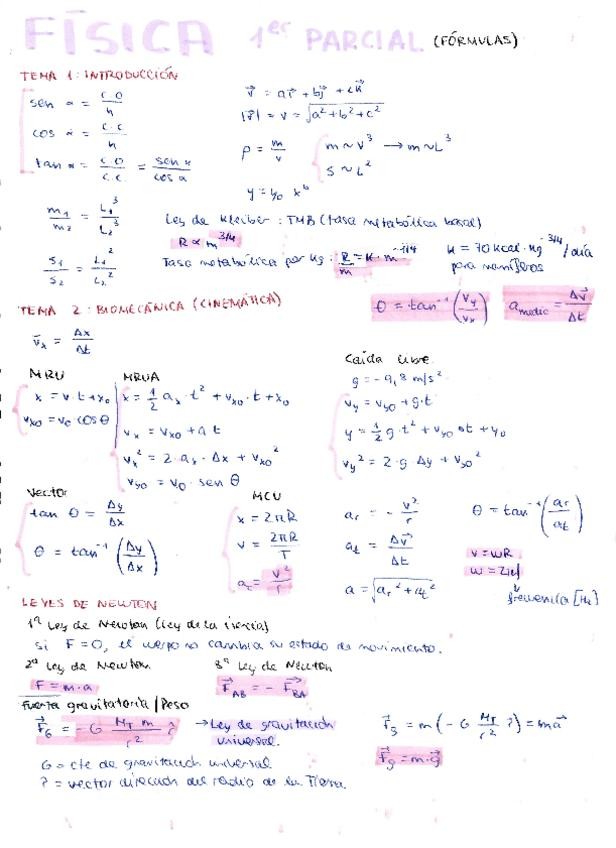 FÍSICA 1er PARCIAL (FÓRMULAS)
TEMA 1: INTRODUCCIÓN
sen α = c.o / h
cos α = c.c. / h
tan α = c.o / c.c. = sen α / cos α
v⃗ = ai⃗ + bj⃗ + ck⃗
|v⃗| = v = √(a² + b² + c²)
ρ = m / v
m ~ v³ → m ~ L³
s ~ L²
y = y₀ x^b
m₁ / m₂ = L₁³ / L₂³
s₁ / s₂ = L₁² / L₂²
Ley de Kleiber: TMB (tasa metabólica basal)
R ∝ m^3/4
Tasa metabólica por kg: R / m = K · m^-1/4
K = 70 kcal · kg^-3/4 / día
para mamíferos
θ = tan⁻¹ (v_y / v_x)
a_media = Δv⃗ / Δt
TEMA 2: BIOMECÁNICA (CINEMÁTICA)
v̄_x = Δx / Δt
MRU
x = v · t + x₀
v_x0 = v₀ cos θ
MRUA
x = 1/2 a_x · t² + v_x0 · t + x₀
v_x = v_x0 + a t
v_x² = 2 · a_x · Δx + v_x0²
v_y0 = v₀ · sen θ
Caída libre
g = -9,8 m/s²
v_y = v_y0 + g · t
y = 1/2 g · t² + v_y0 · t + y₀
v_y² = 2 · g · Δy + v_y0²
Vector
tan θ = Δy / Δx
θ = tan⁻¹ (Δy / Δx)
MCU
x = 2πR
v = 2πR / T
a_c = v² / r
a_r = - v² / r
a_t = Δv⃗ / Δt
a = √(a_r² + a_t²)
θ = tan⁻¹ (a_r / a_t)
v = wR
w = 2πf
frecuencia [Hz]
LEYES DE NEWTON
1ª Ley de Newton (Ley de la inercia)
si F = 0, el cuerpo no cambia su estado de movimiento.
2ª Ley de Newton
F = m · a
3ª Ley de Newton
F⃗_AB = - F⃗_BA
Fuerza gravitatoria / Peso
F⃗_G = - G M_T m / r² r̂
→ Ley de gravitación
universal.
F⃗_g = m (- G M_T / r² r̂) = ma⃗
F⃗_g = m · g⃗
G = cte de gravitación universal
r̂ = vector dirección del radio de la Tierra.